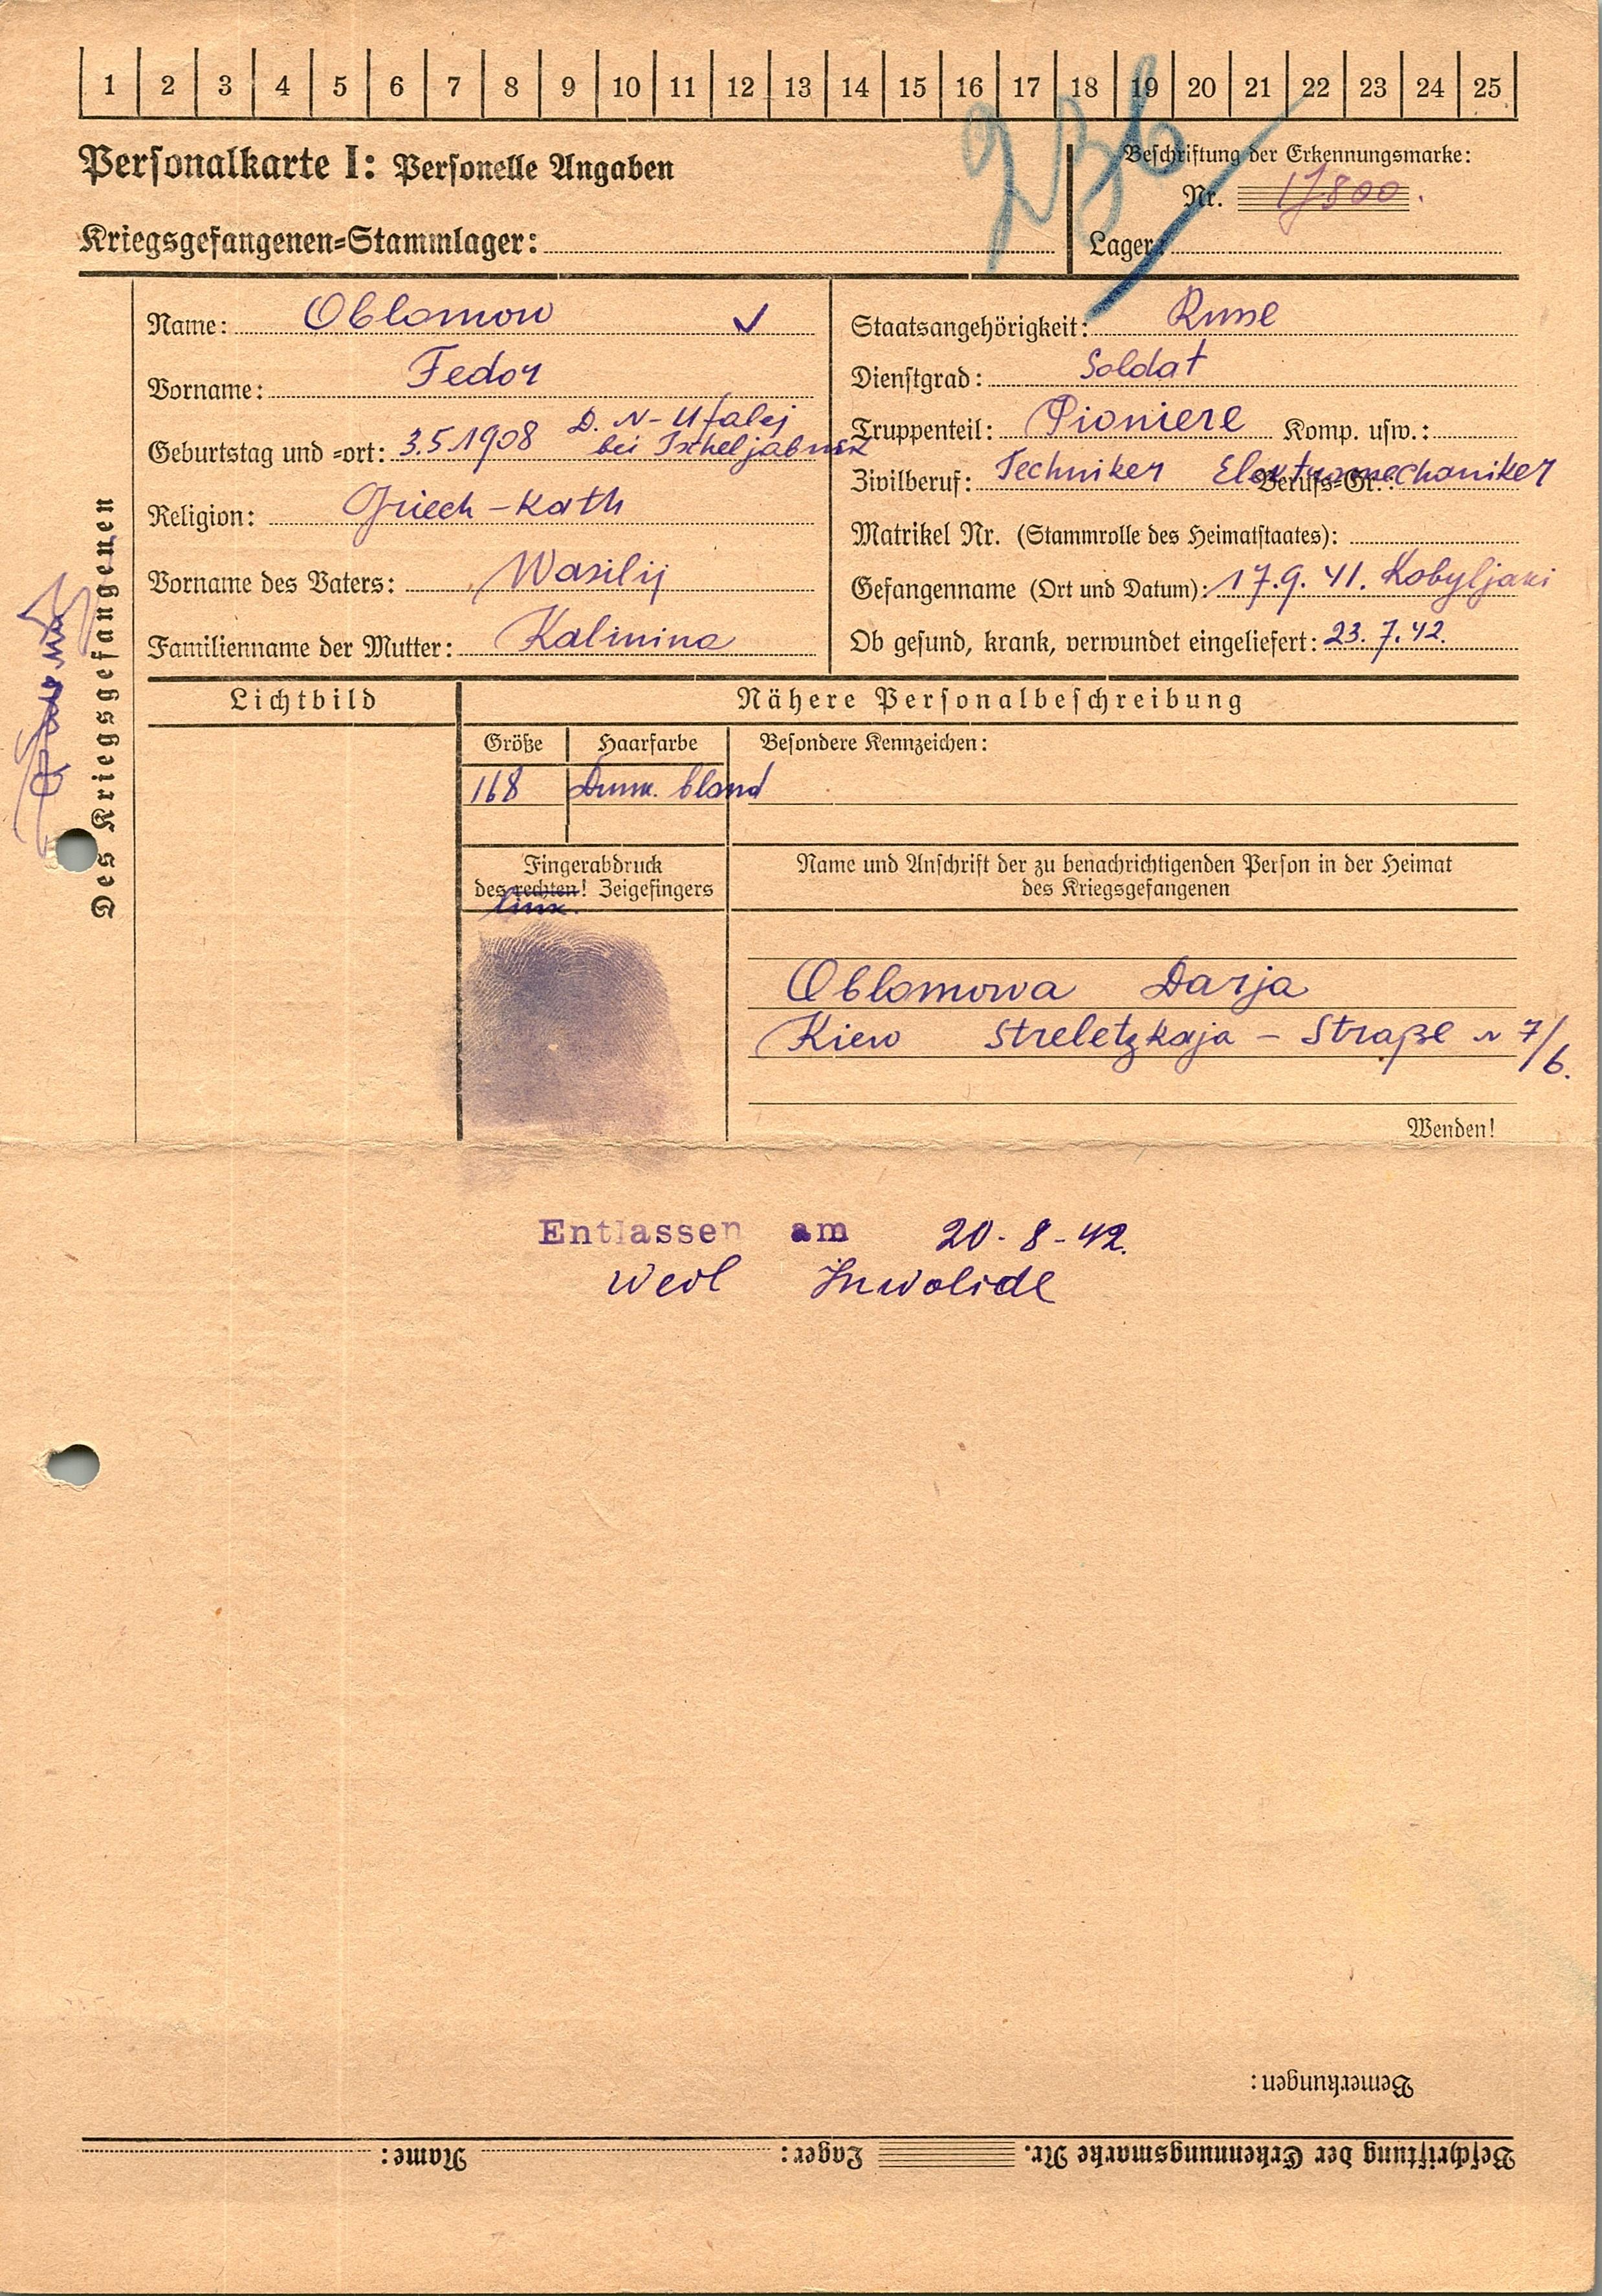 1 2 3 4 5 6 7 8 9 10 11 12 13 14 15 16 17 18 19 20 21 22 23 24 25
Personalkarte I: Personelle Angaben
Kriegsgefangenen=Stammlager:
Beschriftung der Erkennungsmarke:
Nr. 17800.
Lager:
Des Kriegsgefangenen
Name: Oblomow
Vorname: Fedor
Geburtstag und =ort: 3.5.1908 D. N-Ufalej
bei Tscheljabinsk
Religion: Griech-Kath
Vorname des Vaters: Wasilij
Familienname der Mutter: Kalinina
Staatsangehörigkeit: Russe
Dienstgrad: Soldat
Truppenteil: Pioniere Komp. usw.:
Zivilberuf: Techniker Elektromechaniker Berufs=Gr.:
Matrikel Nr. (Stammrolle des Heimatstaates):
Gefangenname (Ort und Datum): 17.9.41. Kobyljaki
Ob gesund, krank, verwundet eingeliefert: 23.7.42.
Lichtbild
Nähere Personalbeschreibung
Größe Haarfarbe Besondere Kennzeichen:
168 Dunk. blond
Fingerabdruck
des rechten! Zeigefingers
link.
Name und Anschrift der zu benachrichtigenden Person in der Heimat
des Kriegsgefangenen
Oblomowa Darja
Kiew Streletzkaja - Straße N 7/6.
Wenden!
Entlassen am 20-8-42.
Weil Inwalide
Bemerkungen:
Beschriftung der Erkennungsmarke Nr. Lager: Name: